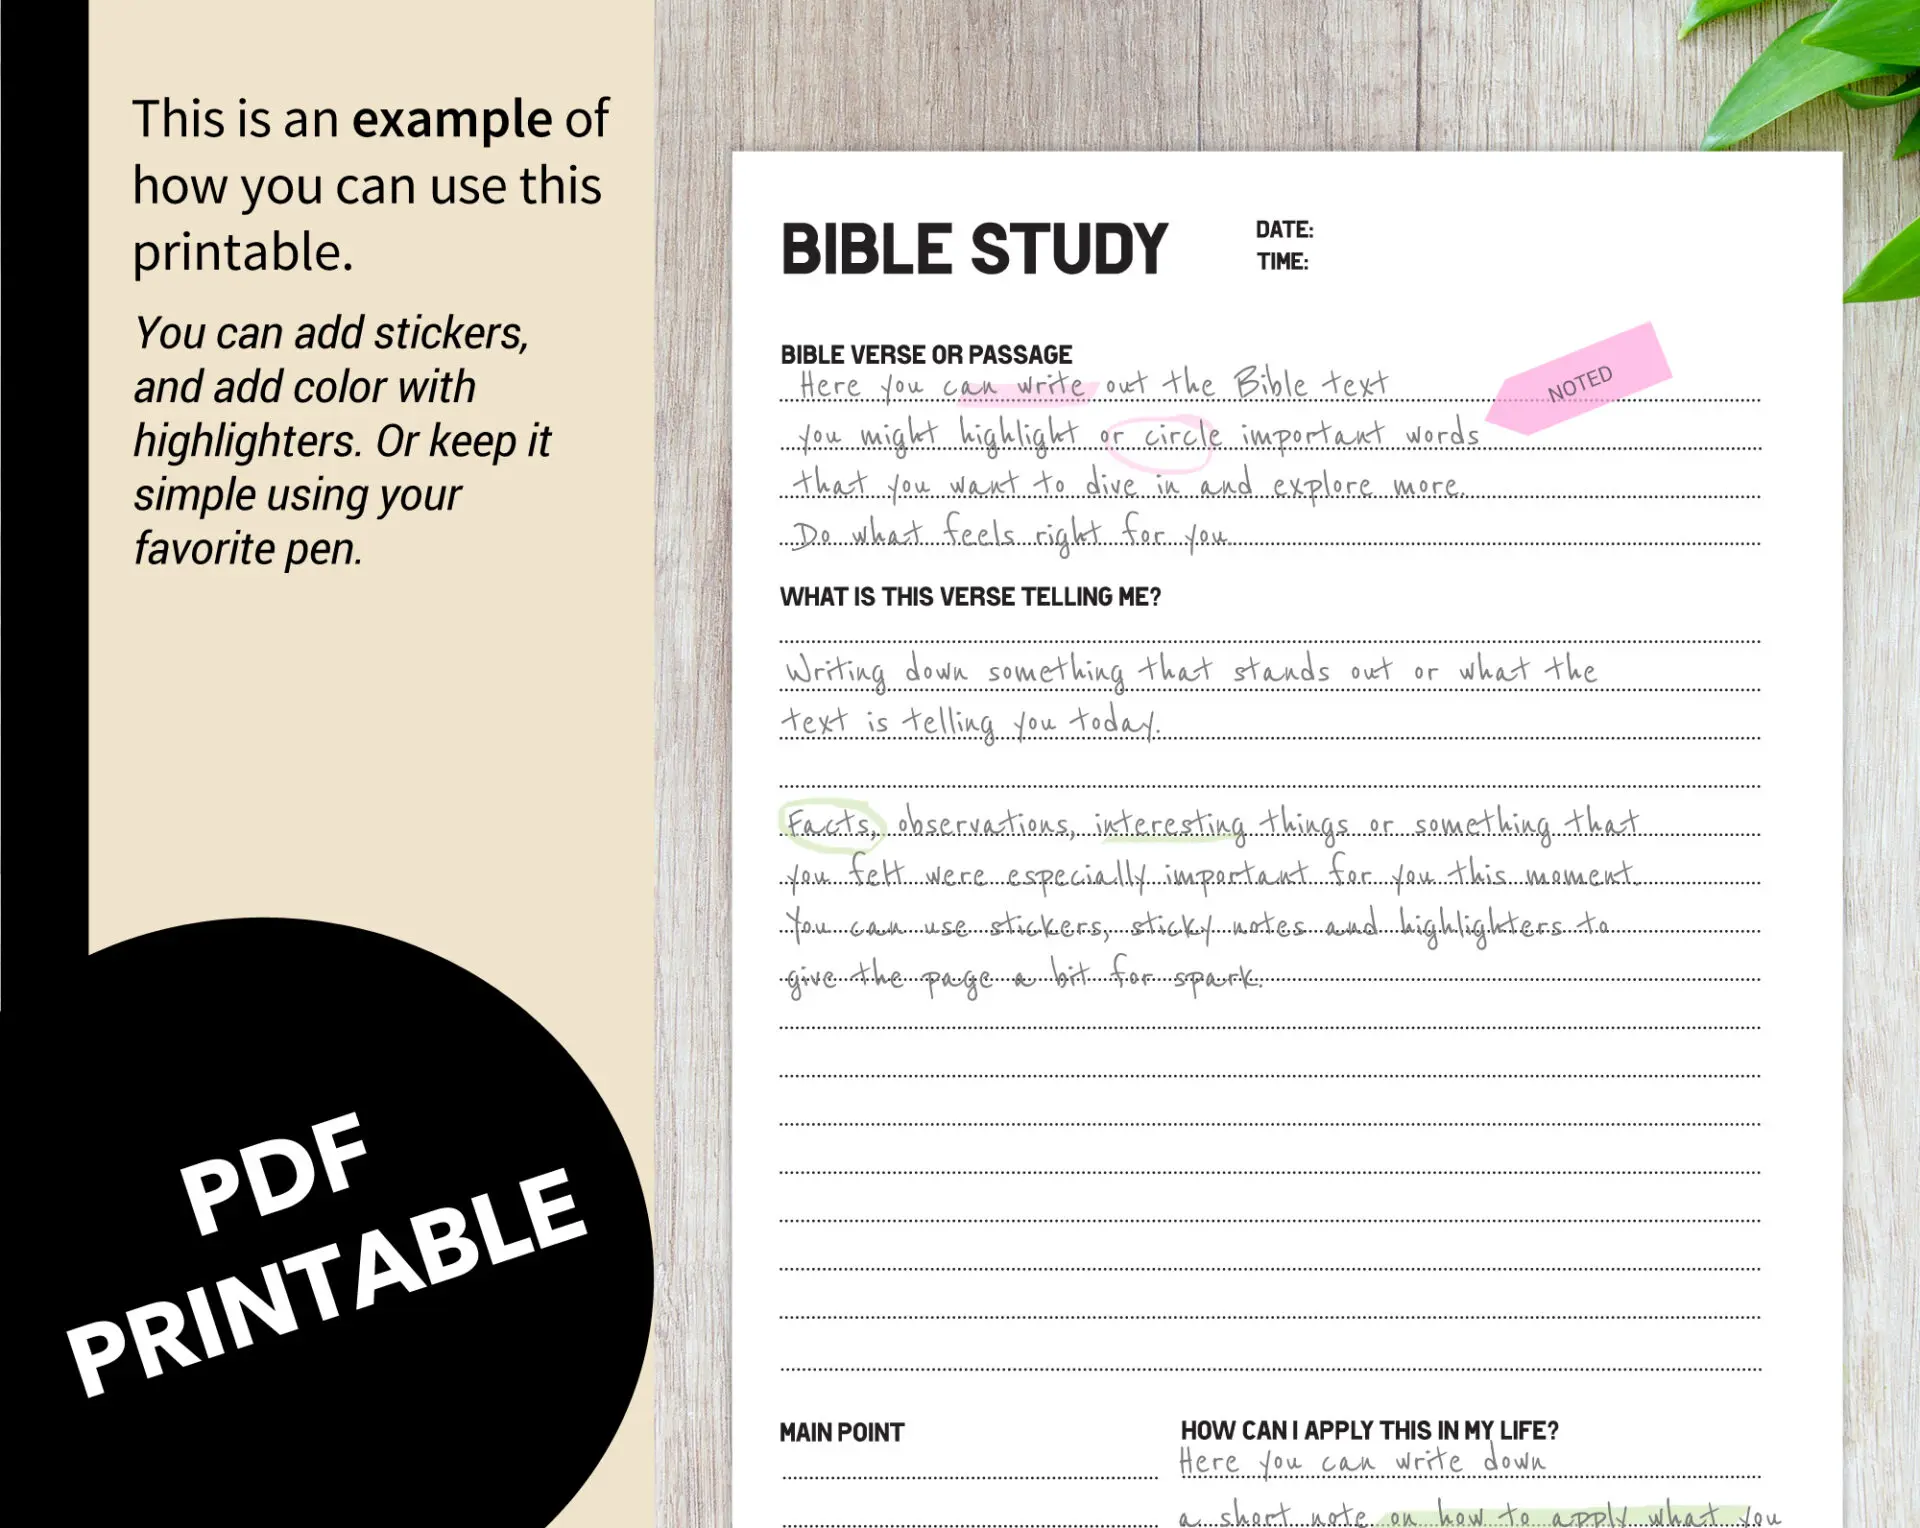 This is an example of
how you can use this
printable.
You can add stickers,
and add color with
highlighters. Or keep it
simple using your
favorite pen.
PDF
PRINTABLE
BIBLE STUDY
DATE:
TIME:
BIBLE VERSE OR PASSAGE
Here you can write out the Bible text
you might highlight or circle important words
that you want to dive in and explore more.
Do what feels right for you.
NOTED
WHAT IS THIS VERSE TELLING ME?
Writing down something that stands out or what the
text is telling you today.
Facts, observations, interesting things or something that
you felt were especially important for you this moment.
You can use stickers, sticky notes and highlighters to
give the page a bit for spark.
MAIN POINT
HOW CAN I APPLY THIS IN MY LIFE?
Here you can write down
a short note on how to apply what you